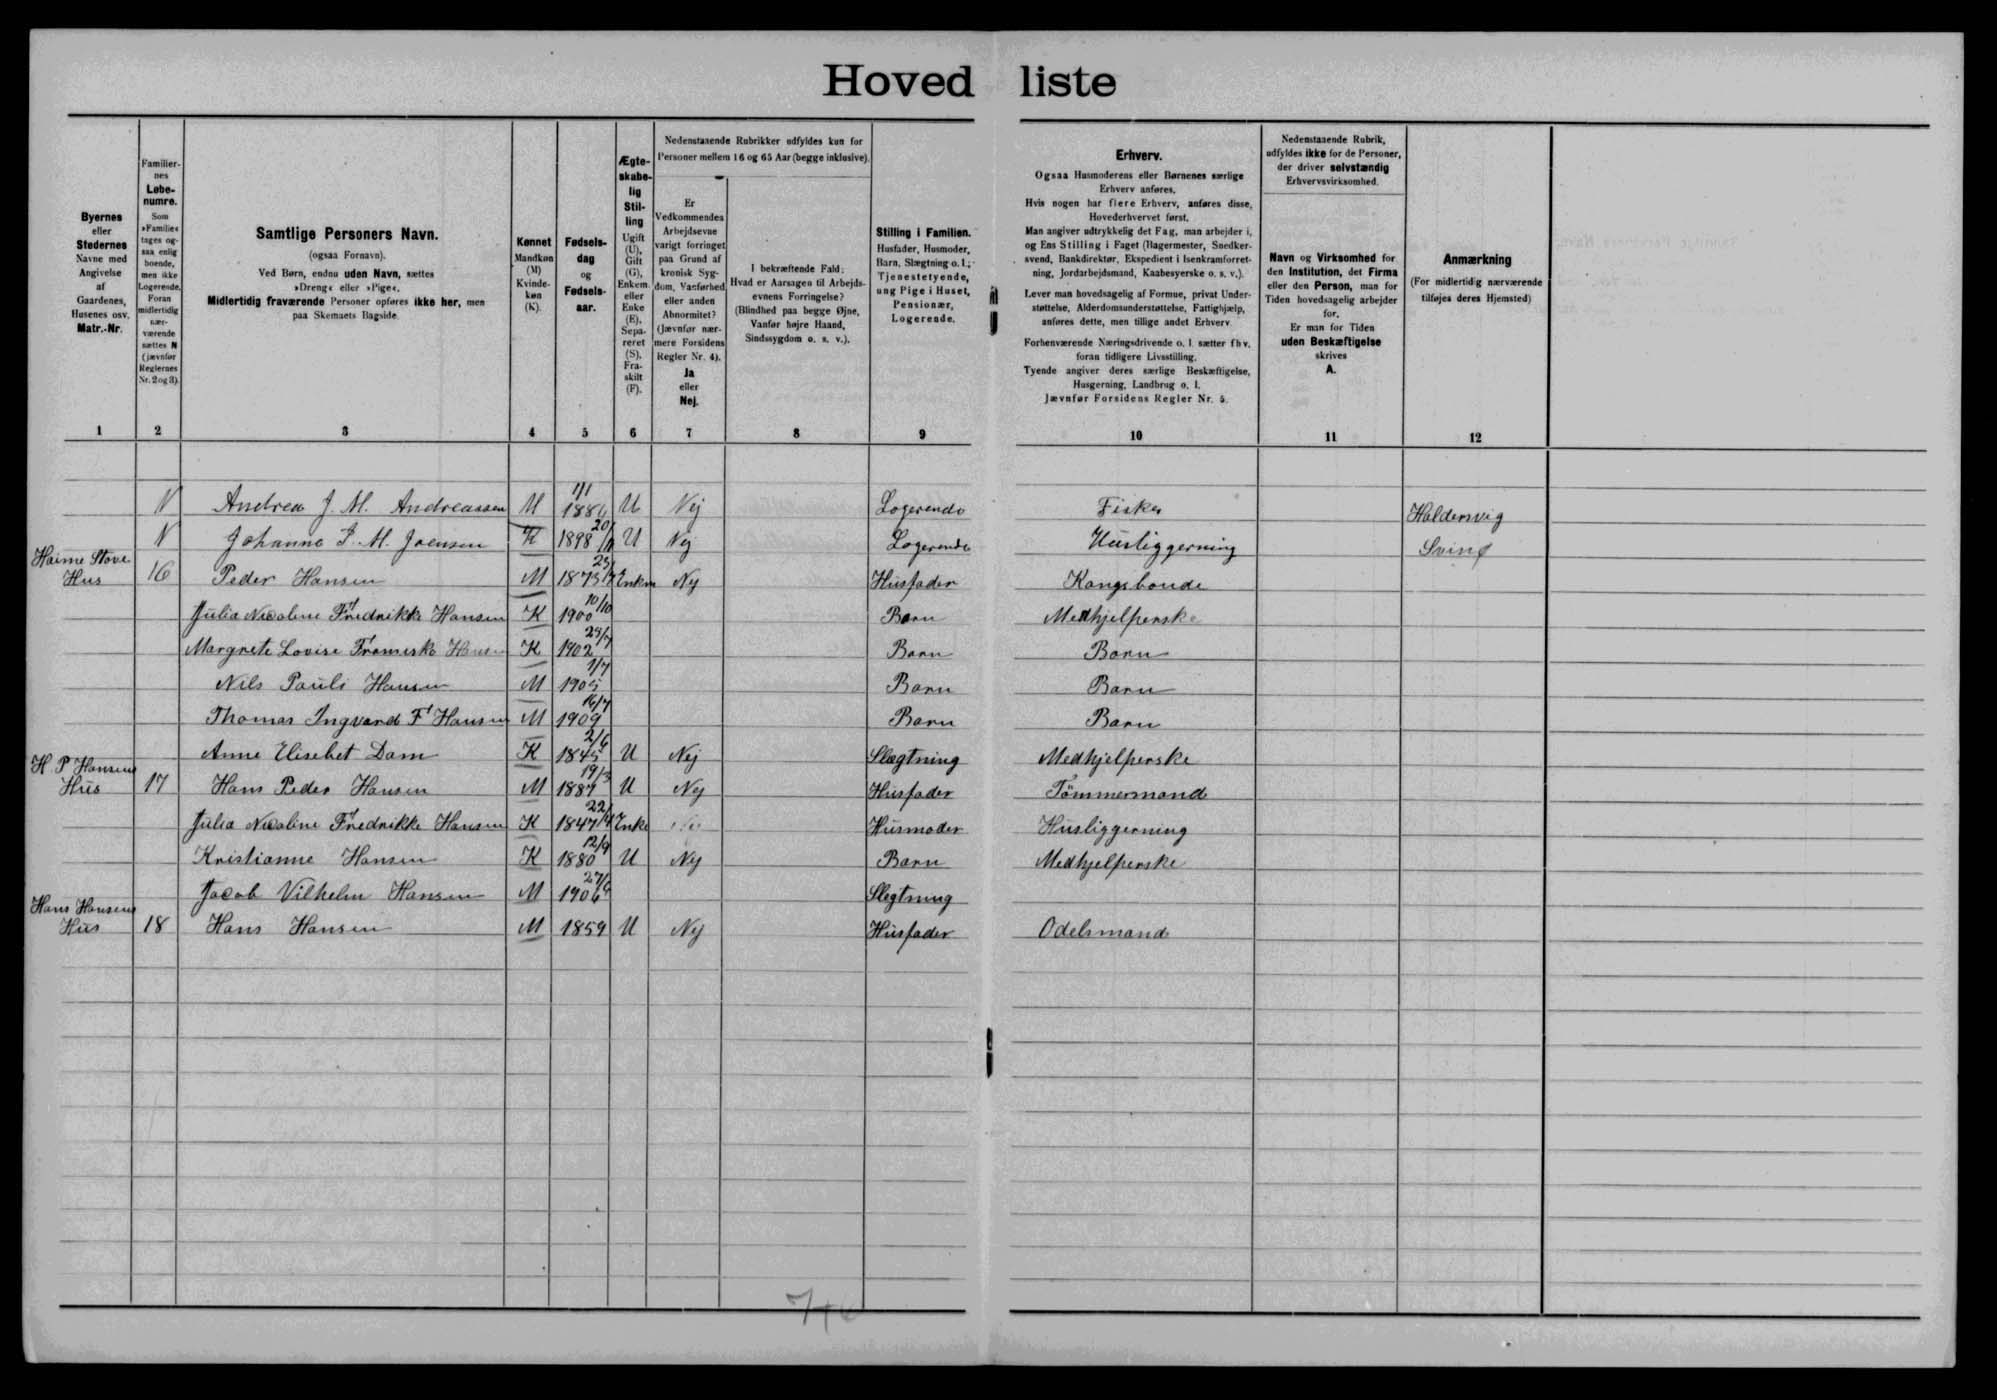 Hovedliste
Nedenstaaende Rubrikker udfyldes kun for
Personer mellem 16 og 65 Aar (begge inklusive).
Byernes
eller
Stedernes
Navne med
Angivelse
af
Gaardenes,
Husenes osv.
Matr.-Nr.
Familier-
nes
Løbe-
numre.
Som
»Familie«
tages og-
saa enlig
boende,
men ikke
Logerende.
Foran
midlertidig
nær-
værende
sættes N
(jævnfør
Reglernes
Nr. 2 og 3).
Samtlige Personers Navn.
(ogsaa Fornavn).
Ved Børn, endnu uden Navn, sættes
»Dreng« eller »Pige«.
Midlertidig fraværende Personer opføres ikke her, men
paa Skemaets Bagside.
Kønnet
Mandkøn
(M)
Kvinde-
køn
(K).
Fødsels-
dag
og
Fødsels-
aar.
Ægte-
skabe-
lig
Stil-
ling
Ugift
(U),
Gift
(G),
Enkem.
eller
Enke
(E),
Sepa-
reret
(S),
Fra-
skilt
(F).
Er
Vedkommendes
Arbejdsevne
varigt forringet
paa Grund af
kronisk Syg-
dom, Vanførhed
eller anden
Abnormitet?
(Jævnfør nær-
mere Forsidens
Regler Nr. 4).
Ja
eller
Nej.
I bekræftende Fald:
Hvad er Aarsagen til Arbejds-
evnens Forringelse?
(Blindhed paa begge Øjne,
Vanfør højre Haand,
Sindssygdom o. s. v.).
Stilling i Familien.
Husfader, Husmoder,
Barn, Slægtning o. l.;
Tjenestetyende,
ung Pige i Huset,
Pensionær,
Logerende.
Erhverv.
Ogsaa Husmoderens eller Børnenes særlige
Erhverv anføres.
Hvis nogen har flere Erhverv, anføres disse,
Hovederhvervet først.
Man angiver udtrykkelig det Fag, man arbejder i,
og Ens Stilling i Faget (Bagermester, Snedker-
svend, Bankdirektør, Ekspedient i Isenkramforret-
ning, Jordarbejdsmand, Kaabesyerske o. s. v.).
Lever man hovedsagelig af Formue, privat Under-
støttelse, Alderdomsunderstøttelse, Fattighjælp,
anføres dette, men tillige andet Erhverv.
Forhenværende Næringsdrivende o. l. sætter fhv.
foran tidligere Livsstilling.
Tyende angiver deres særlige Beskæftigelse,
Husgerning, Landbrug o. l.
Jævnfør Forsidens Regler Nr. 5.
Nedenstaaende Rubrik,
udfyldes ikke for de Personer,
der driver selvstændig
Erhvervsvirksomhed.
Navn og Virksomhed for
den Institution, det Firma
eller den Person, man for
Tiden hovedsagelig arbejder
for.
Er man for Tiden
uden Beskæftigelse
skrives
A.
Anmærkning
(For midlertidig nærværende
tilføjes deres Hjemsted)
1 2 3 4 5 6 7 8 9 10 11 12
N Andrea J. M. Andreassen M 1/1 U Nej Logerende Fisker Haldersvig
N Johanne J. M. Joensen K 1898 U Nej Logerende Husliggerning Svinø
Heime Stove
Hus 16 Peder Hansen M Enkm Nej Husfader Kongsbonde
Julia Nicoline Fredrikke Hansen K 1900 10/10 Barn Medhjelperske
Margrete Lovise Hansen K 1902 Barn Barn
Nils Pauli Hansen M 1905 1/7 Barn Barn
Thomas Ingvard F Hansen M 1909 16/7 Barn Barn
Anne Elisebet Dam K 1845 2/6 U Nej Slægtning Medhjelperske
H P Hansens
Hus 17 Hans Peder Hansen M 1887 19/3 U Nej Husfader Tømmermand
Julia Nicoline Fredrikke Hansen K 1847 Enke Husmoder Husliggerning
Kristianne Hansen K 1880 12/9 U Nej Barn Medhjelperske
Jacob Vilhelm Hansen M 1906 Slegtning
Hans Hansens
Hus 18 Hans Hansen M 1859 U Nej Husfader Odelsmand